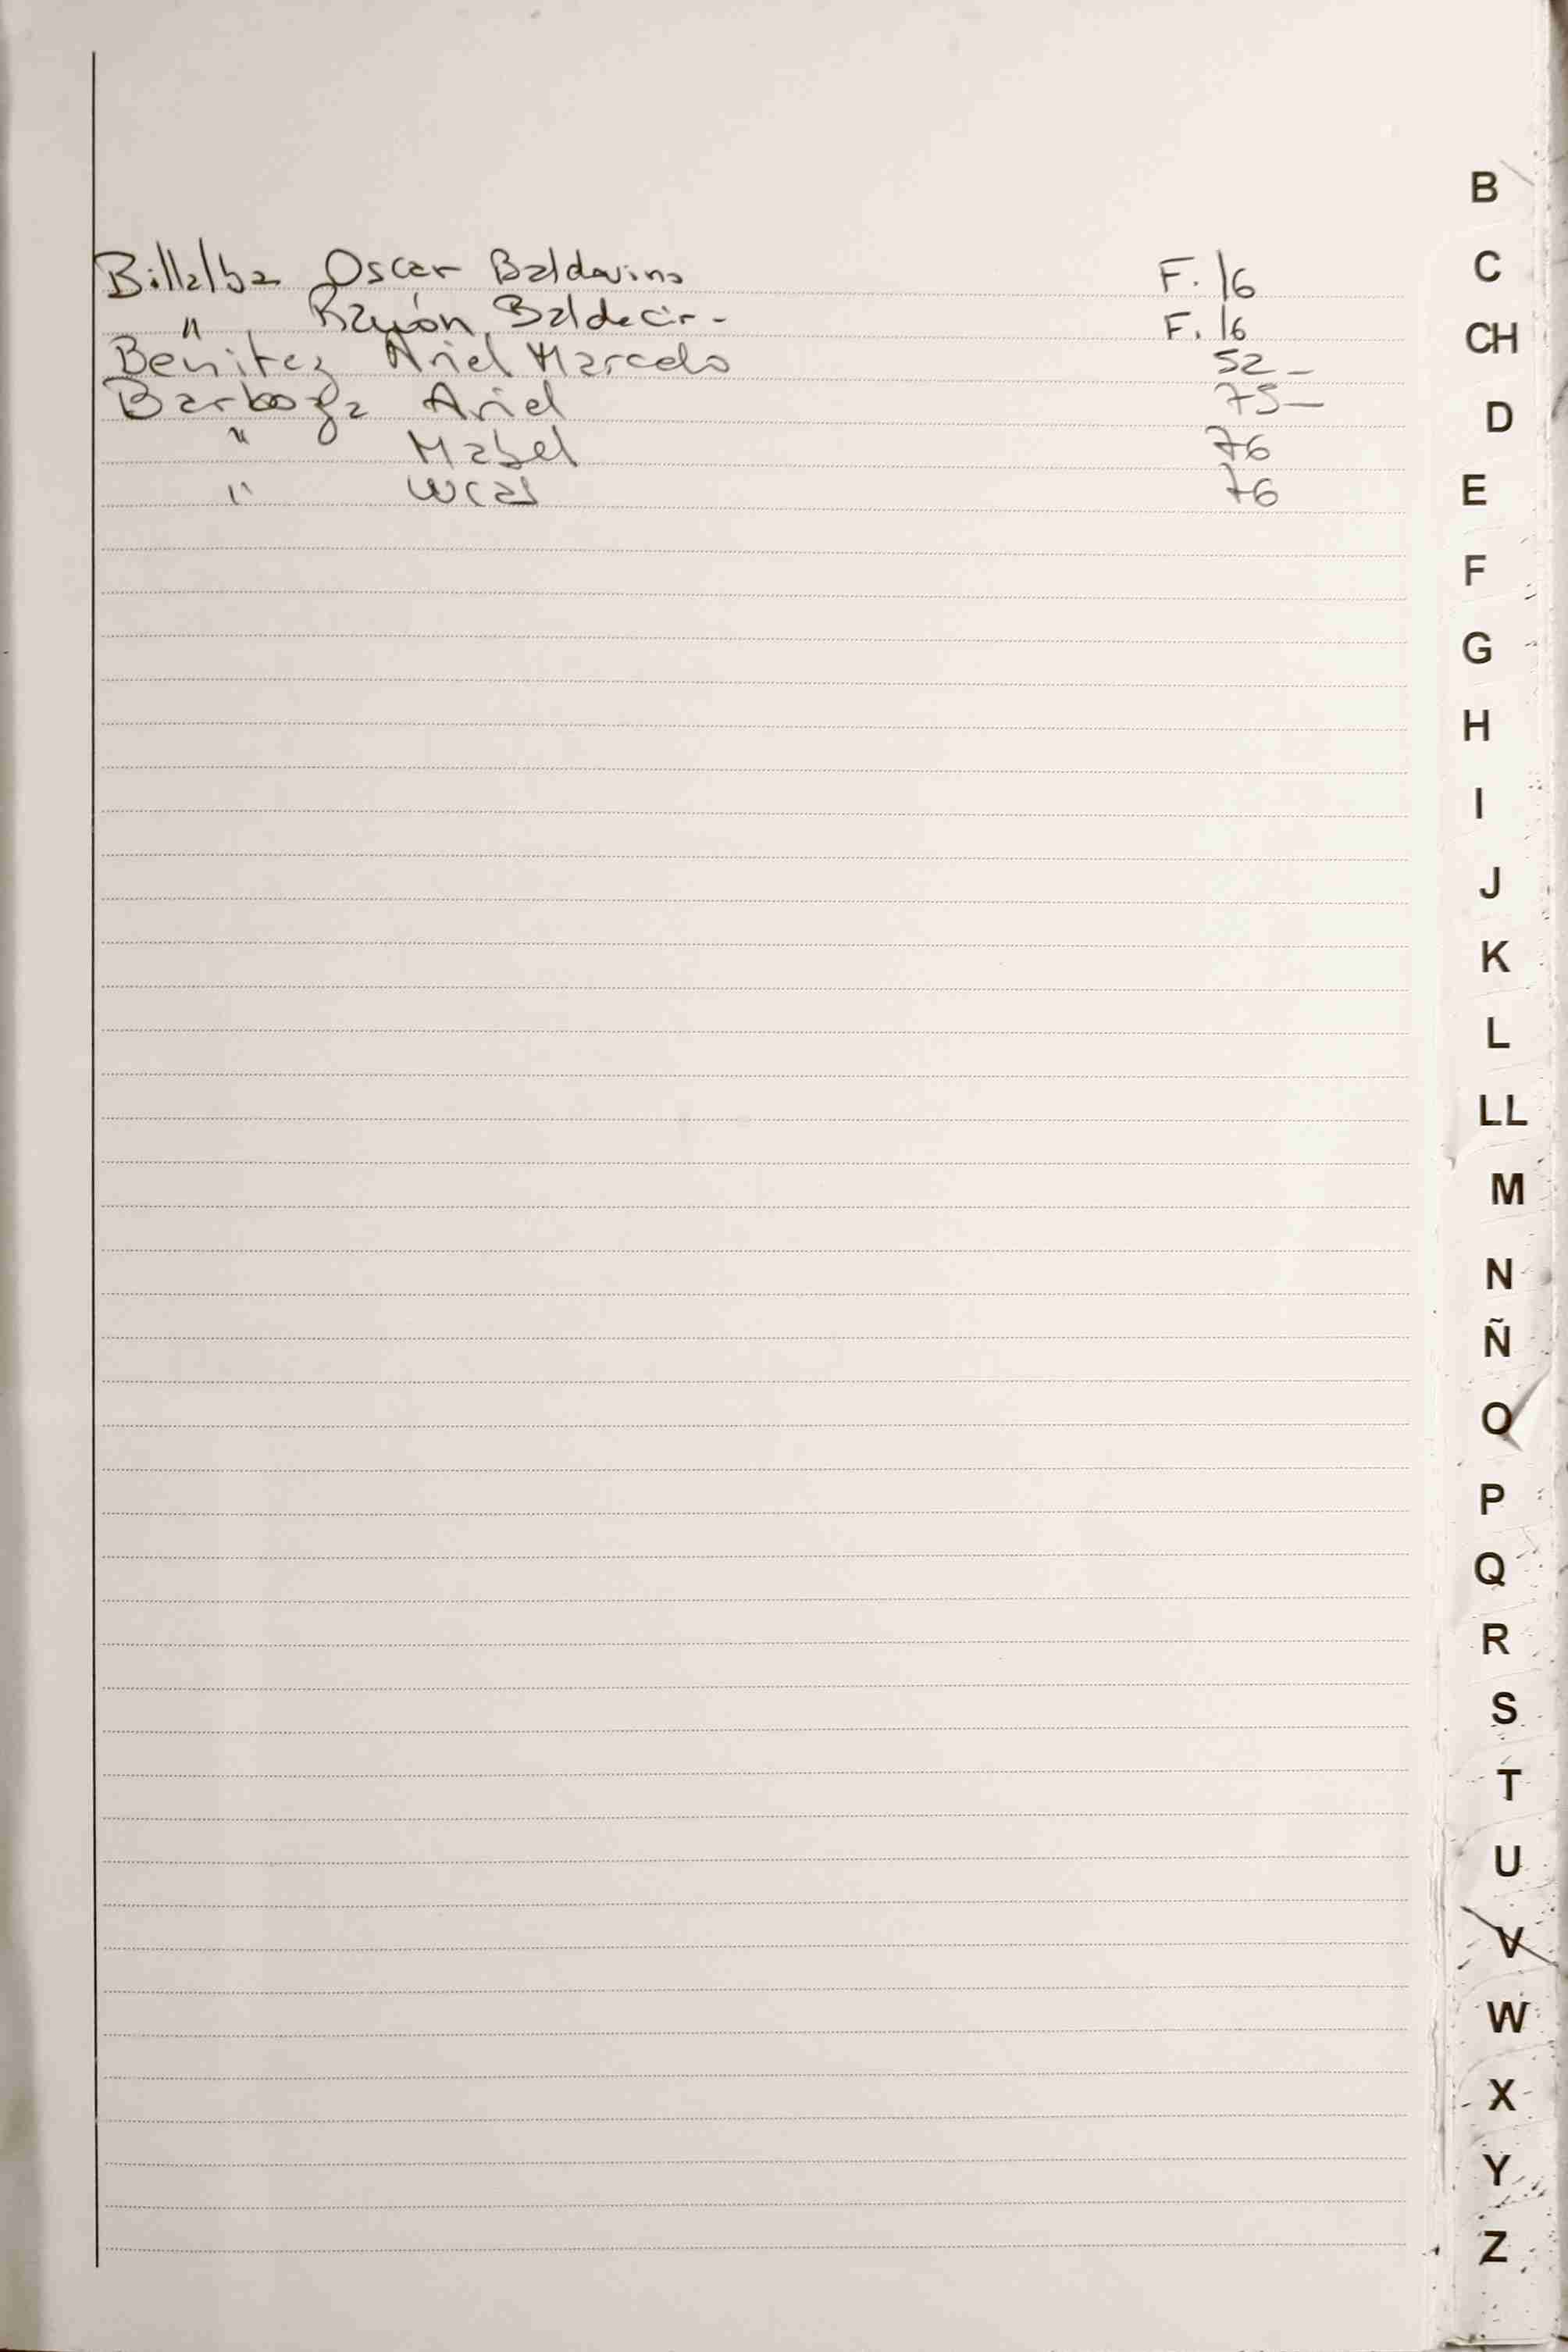 Billalba Oscar Baldovino F. 16
" Ramón Baldecir - F. 16
Benitez Ariel Marcelo 52 -
Barboza Ariel 75 -
" Mabel 76
" Lucas 76
B
C
CH
D
E
F
G
H
I
J
K
L
LL
M
N
Ñ
O
P
Q
R
S
T
U
V
W
X
Y
Z